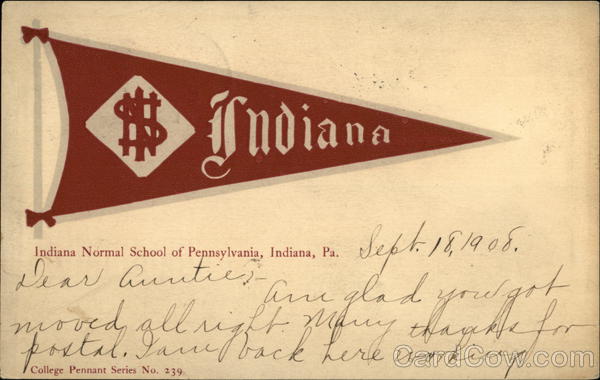 Indiana
Indiana Normal School of Pennsylvania, Indiana, Pa.
Sept. 18, 1908.
Dear Auntie,-
Am glad you got
moved all right. Many thanks for
postal. I am back here working
College Pennant Series No. 239
CardCow.com